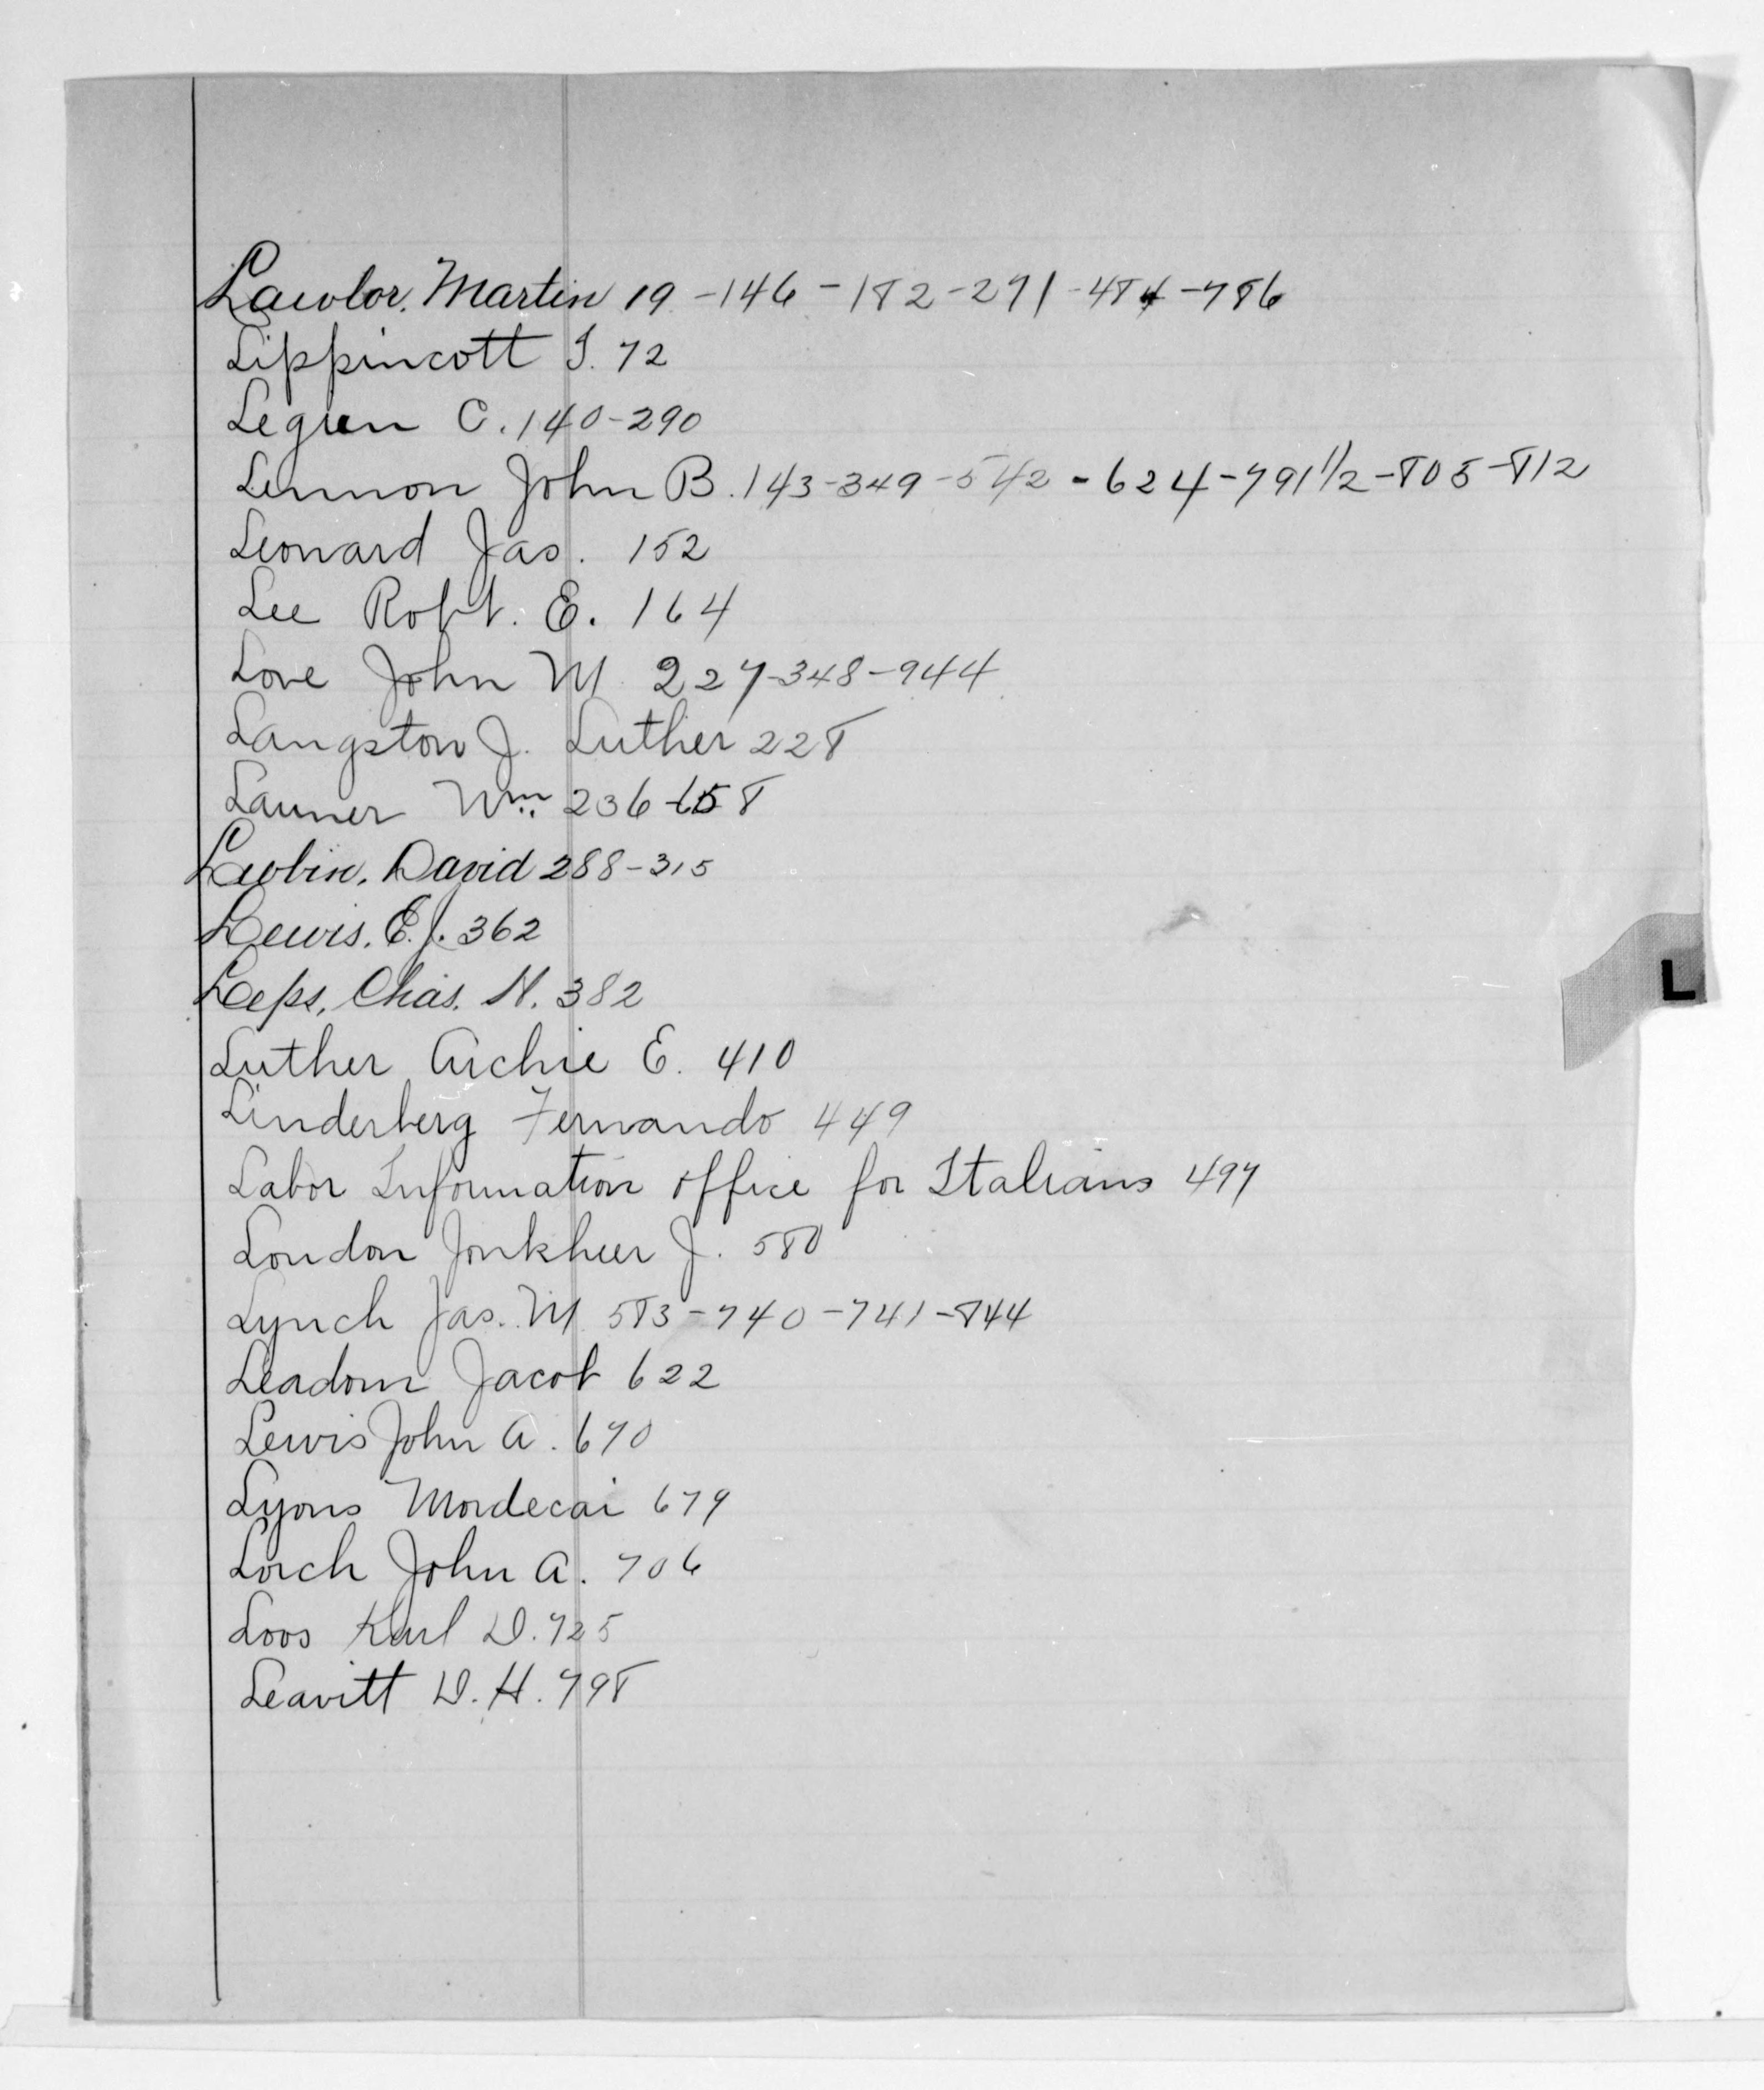 Lawlor, Martin 19 - 146 - 182 - 271 - 484 - 786
Lippincott J. 72
Legien C. 140-290
Lennon John B. 143-349-542 - 624-791 1/2-805-812
Leonard Jas. 152
Lee Robt. E. 164
Love John M. 227-348-944
Langston J. Luther 228
Launer Wm. 236-658
Lubin, David 288-315
Lewis, E. J. 362
Leps, Chas. N. 382
Luther Archie E. 410
Linderberg Fernando 449
Labor Information Office for Italians 497
London Jonkheer J. 580
Lynch Jas. M 583-740-741-844
Leadom Jacob 622
Lewis John A. 670
Lyons Mordecai 679
Lorch John A. 706
Loos Karl D. 725
Leavitt D. H. 798
L